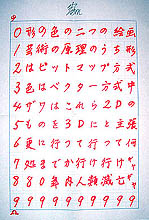 0形の色の二つの絵画
1芸術の原理のうち形
2はビットマップ方式
3色はベクター方式中
4ダリはこれら2Dの
5ものを3Dにと主張
6更に行って行って何
7処までか行け行け
880年内人類滅亡
9999999999